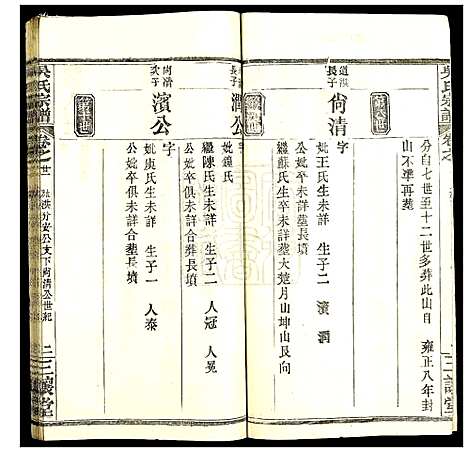 吳氏宗譜
卷之
三讓堂
分自七世至十二世多葬此山自 雍正八年封
山不準再塟
道洪
長子
尙清
字
妣王氏生未詳 生子二 濱 潤
公妣卒俱未詳塟長墳
繼蘇氏生未詳塟大楚月山坤山艮向
長子
潤公
字
妣鐘氏
繼陳氏生未詳 生子二 人冠 人冕
公妣卒俱未詳合葬長墳
尙清
次子
濱公
字
妣庾氏生未詳 生子一 人泰
公妣卒俱未詳合塟長墳
吳氏宗譜
卷之
世
洪分安公支下尙清公世紀
二
三讓堂